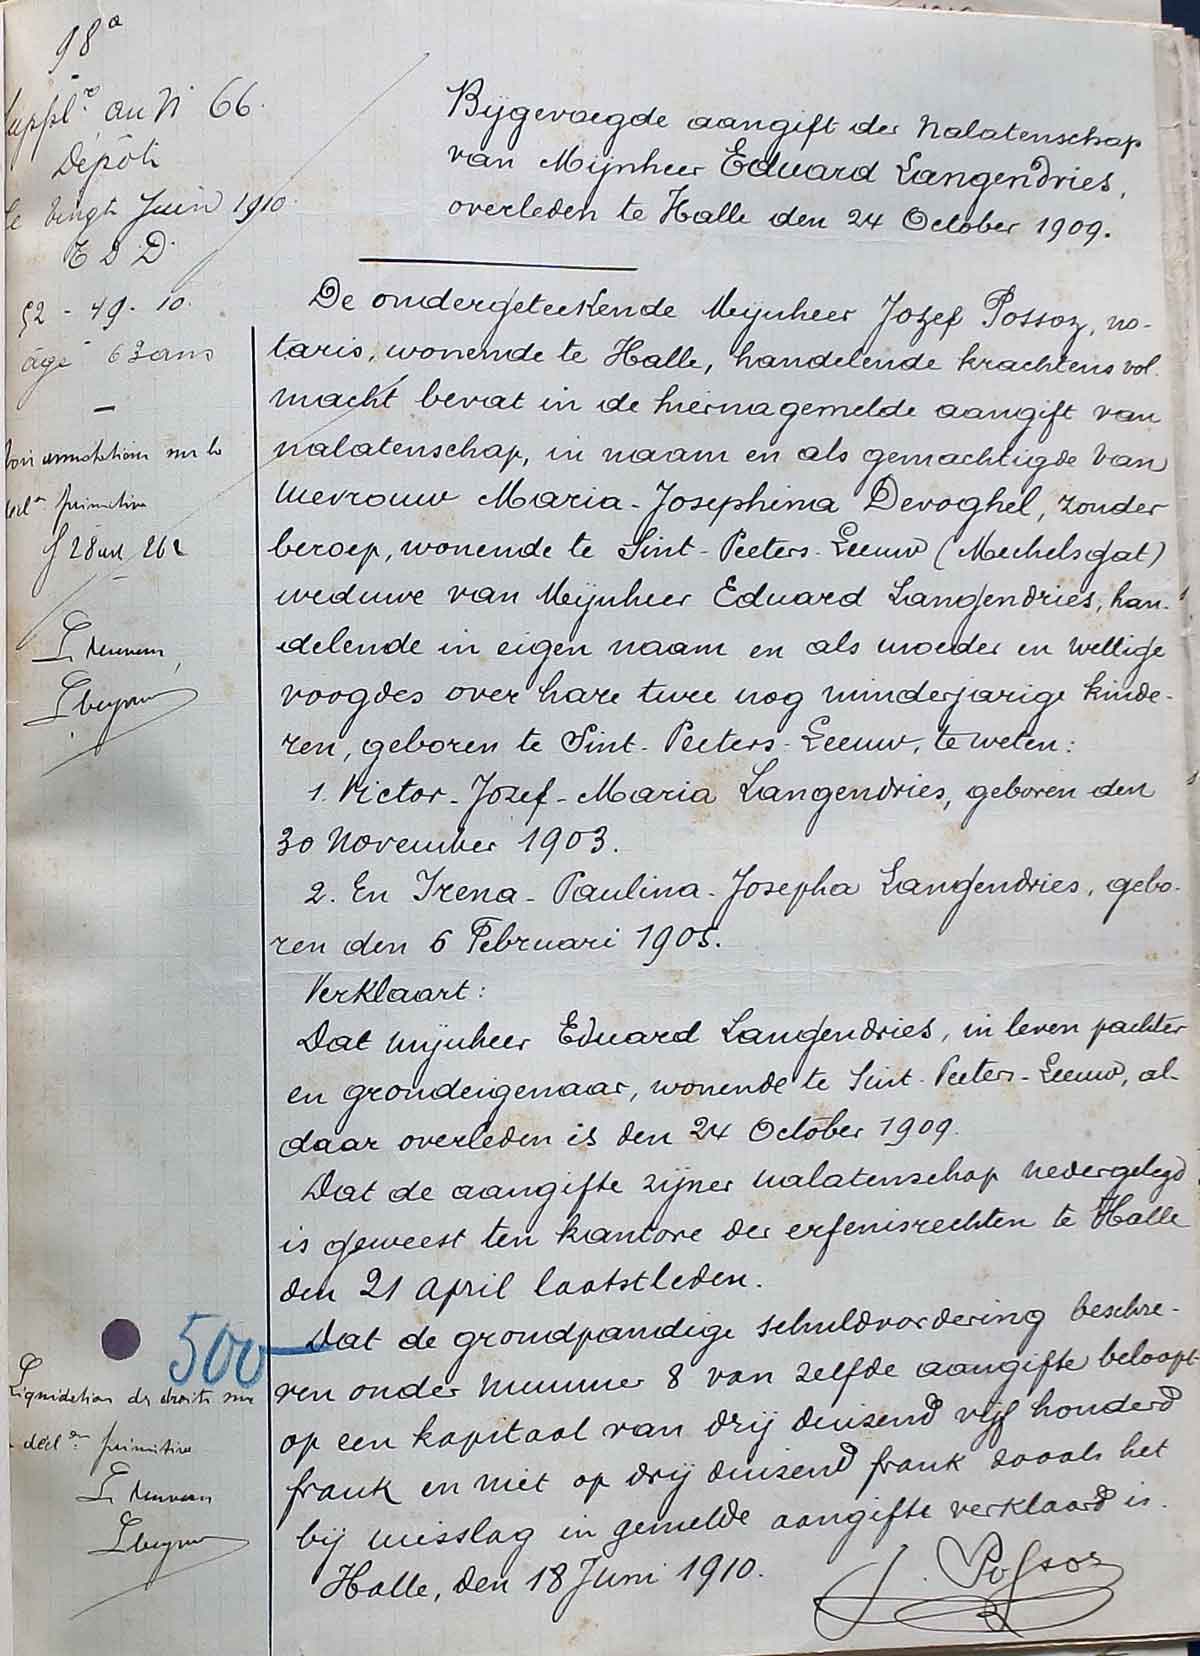 98a
Suppl.t au N 66.
Dépôt
le vingt Juin 1910.
52 - 49 - 10.
âgé 63 ans
Voir annotations sur la
décl.n primitive
Liquidation des droits sur
décl.on primitive
500
Bijgevoegde aangift der Nalatenschap
van Mijnheer Eduard Langendries,
overleden te Halle den 24 October 1909.
De ondergeteekende Mijnheer Jozef Possoz, no-
taris, wonende te Halle, handelende krachtens vol-
macht bevat in de hiernagemelde aangift van
nalatenschap, in naam en als gemachtigde van
Mevrouw Maria-Josephina Devoghel, zonder
beroep, wonende te Sint-Peeters-Leeuw (Mechelsgat)
weduwe van Mijnheer Eduard Langendries, han-
delende in eigen naam en als moeder en wettige
voogdes over hare twee nog minderjarige kinde-
ren, geboren te Sint-Peeters-Leeuw, te weten:
1. Victor-Jozef-Maria Langendries, geboren den
30 November 1903.
2. En Irena-Paulina-Josepha Langendries, gebo-
ren den 6 Februari 1905.
Verklaart:
Dat mijnheer Eduard Langendries, in leven pachter
en grondeigenaar, wonende te Sint-Peeters-Leeuw, al-
daar overleden is den 24 October 1909.
Dat de aangifte zijner nalatenschap nedergelegd
is geweest ten kantore der erfenisrechten te Halle
den 21 april laatstleden.
Dat de grondpandige schuldvordering beschre-
ven onder nummer 8 van zelfde aangifte beloopt
op een kapitaal van drij duizend vijf honderd
frank en niet op drij duizend frank zooals het
bij misslag in gemelde aangifte verklaard is.
Halle, den 18 Juni 1910.
J. Possoz